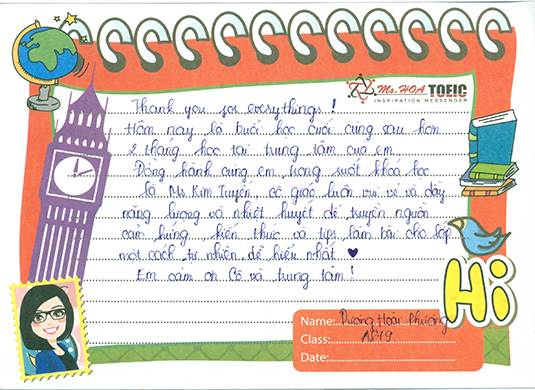 Ms.HOA TOEIC
INSPIRATION MESSENGER
Thank you for everythings !
Hôm nay là buổi học cuối cùng sau hơn
2 tháng học tại trung tâm của em.
Đồng hành cùng em trong suốt khoá học
là Ms. Kim Tuyến, cô giáo luôn vui vẻ và đầy
năng lượng và nhiệt huyết để truyền nguồn
cảm hứng, kiến thức và tips làm bài cho lớp
một cách tự nhiên, dễ hiểu nhất ♥
Em cảm ơn Cô và trung tâm !
Hi
Name: Dương Hoài Phương
Class: A579
Date: